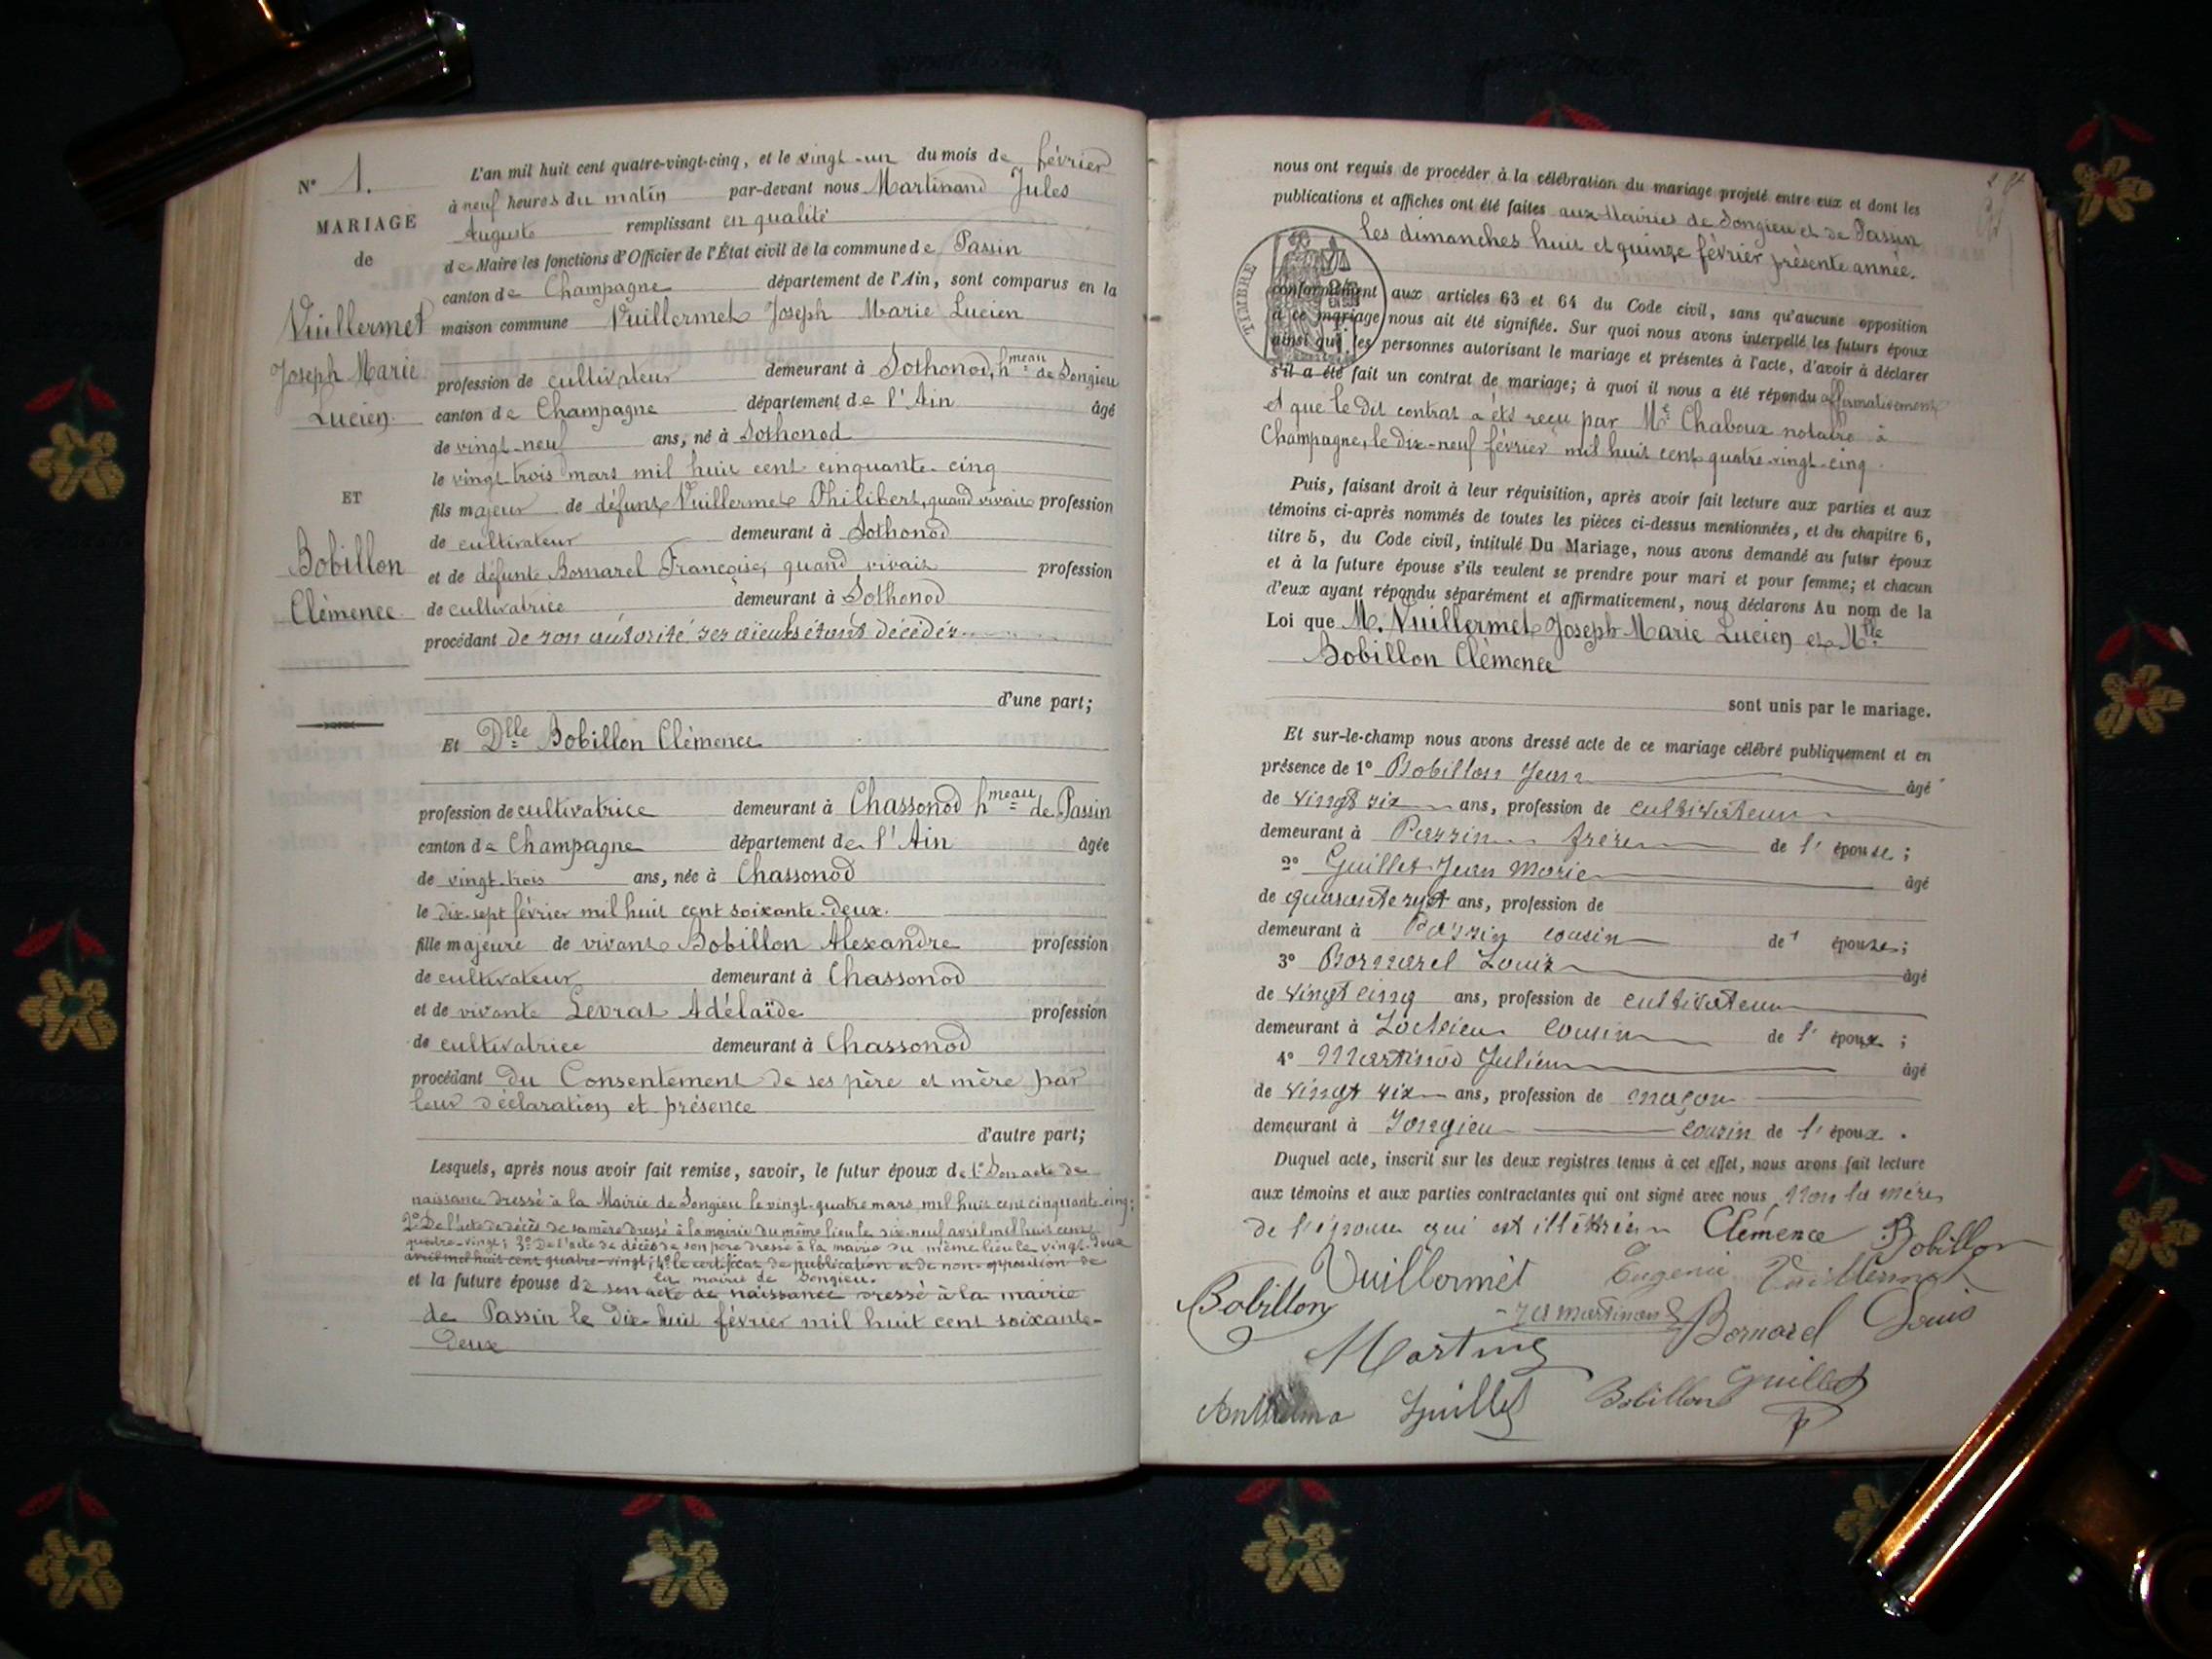 N° 1.
MARIAGE
de
Vuillermet
Joseph Marie
Lucien.
ET
Bobillon
Clémence.
L'an mil huit cent quatre-vingt-cinq, et le vingt-un du mois de février
à neuf heures du matin par-devant nous Martinand Jules
Auguste remplissant en qualité
de Maire les fonctions d'Officier de l'État civil de la commune de Passin
canton de Champagne département de l'Ain, sont comparus en la
maison commune Vuillermet Joseph Marie Lucien
profession de cultivateur demeurant à Sothonod, hmeau de Songieu
canton de Champagne département de l'Ain âgé
de vingt-neuf ans, né à Sothonod
le vingt-trois mars mil huit cent cinquante-cinq
fils majeur de défunt Vuillermet Philibert, quand vivait profession
de cultivateur demeurant à Sothonod
et de défunte Bornarel Françoise, quand vivait profession
de cultivatrice demeurant à Sothonod
procédant de son autorité ses aïeuls étant décédés
d'une part;
Et Dlle Bobillon Clémence
profession de cultivatrice demeurant à Chassonod hmeau de Passin
canton de Champagne département de l'Ain âgée
de vingt-trois ans, née à Chassonod
le dix-sept février mil huit cent soixante-deux.
fille majeure de vivant Bobillon Alexandre profession
de cultivateur demeurant à Chassonod
et de vivante Levrat Adélaïde profession
de cultivatrice demeurant à Chassonod
procédant du Consentement de ses père et mère par
leur déclaration et présence
d'autre part;
Lesquels, après nous avoir fait remise, savoir, le futur époux de 1° Son acte de
naissance dressé à la Mairie de Songieu le vingt-quatre mars mil huit cent cinquante-cinq;
2° De l'acte de décès de sa mère dressé à la mairie du même lieu le dix-neuf avril mil huit cent
quatre-vingt; 3° De l'acte de décès de son père dressé à la mairie du même lieu le vingt-deux
avril mil huit cent quatre-vingt; 4° le certificat de publication et de non-opposition de
la mairie de Songieu.
et la future épouse de son acte de naissance dressé à la mairie
de Passin le dix-huit février mil huit cent soixante-
deux
nous ont requis de procéder à la célébration du mariage projeté entre eux et dont les
publications et affiches ont été faites aux Mairies de Songieu et de Passin
les dimanches huit et quinze février présente année.
TIMBRE
conformément aux articles 63 et 64 du Code civil, sans qu'aucune opposition
à ce mariage nous ait été signifiée. Sur quoi nous avons interpellé les futurs époux
ainsi que les personnes autorisant le mariage et présentes à l'acte, d'avoir à déclarer
s'il a été fait un contrat de mariage; à quoi il nous a été répondu affirmativement
et que le dit contrat a été reçu par Me Chaboux notaire à
Champagne, le dix-neuf février mil huit cent quatre-vingt-cinq.
Puis, faisant droit à leur réquisition, après avoir fait lecture aux parties et aux
témoins ci-après nommés de toutes les pièces ci-dessus mentionnées, et du chapitre 6,
titre 5, du Code civil, intitulé Du Mariage, nous avons demandé au futur époux
et à la future épouse s'ils veulent se prendre pour mari et pour femme; et chacun
d'eux ayant répondu séparément et affirmativement, nous déclarons Au nom de la
Loi que M. Vuillermet Joseph Marie Lucien et Mlle
Bobillon Clémence
sont unis par le mariage.
Et sur-le-champ nous avons dressé acte de ce mariage célébré publiquement et en
présence de 1° Bobillon Jean âgé
de vingt six ans, profession de cultivateur
demeurant à Passin frère de l'épouse;
2° Guillet Jean Marie âgé
de quarante sept ans, profession de
demeurant à Passin cousin de l'épouse;
3° Bornarel Louis âgé
de vingt cinq ans, profession de cultivateur
demeurant à Lochieu cousin de l'époux;
4° Martinod Julien âgé
de vingt six ans, profession de maçon
demeurant à Songieu cousin de l'époux.
Duquel acte, inscrit sur les deux registres tenus à cet effet, nous avons fait lecture
aux témoins et aux parties contractantes qui ont signé avec nous, Non la mère
de l'épouse qui est illétrée Clémence Bobillon
Vuillermet Eugenie Vuillermet
Bobillon Bornarel Louis
Guillet Bobillon Guillet